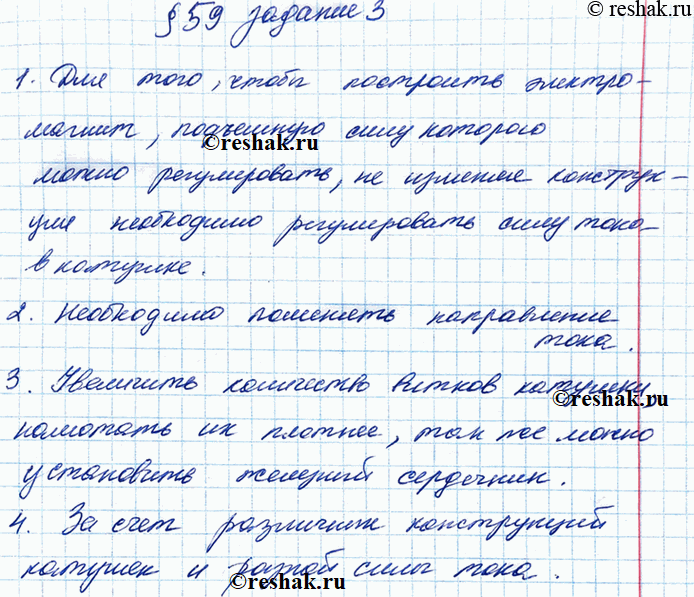 © reshak.ru
§ 59 задание 3
1. Для того, чтобы построить электро-
магнит, подъемную силу которого
©reshak.ru
можно регулировать, не изменяя конструк-
ции необходимо регулировать силу тока
в катушке.
2. Необходимо поменять направление
тока.
3. Увеличить количество витков катушки,
©reshak.ru
намотать их плотнее, так же можно
установить железный сердечник.
4. За счет различия конструкций
катушек и разной силы тока.
©reshak.ru